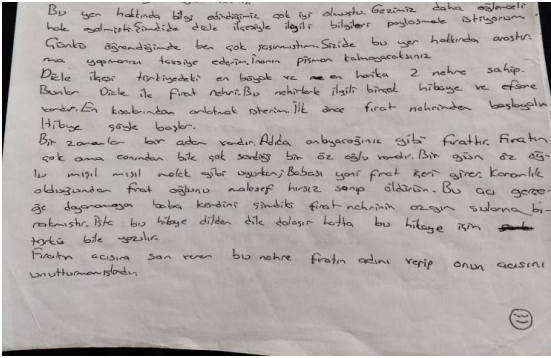 Bu yer hakkında bilgi edindiğimiz çok iyi olmuştu. Gezimiz daha eğlenceli
hale gelmişti. Şimdide dicle ilçesiyle ilgili bilgileri paylaşmak istiyorum
Çünkü öğrendiğimde ben çok şaşırmıştım. Sizide bu yer hakkında araştır-
ma yapmanızı tavsiye ederim. İnanın pişman kalmayacaksınız
Dicle ilçesi türkiyedeki en büyük ve en harika 2 nehre sahip.
Bunlar Dicle ile Fırat nehri. Bu nehirlerle ilgili birçok hikaye ve efsane
vardır. En kısasından anlatmak isterim. İlk önce fırat nehrinden başlayalım
Hikaye şöyle başlar.
Bir zamanlar bir adam vardır. Adıda anlayacağınız gibi fırattır. Fıratın
çok ama canından bile çok sevdiği bir öz oğlu vardır. Bir gün öz oğ-
lu mışıl mışıl melek gibi uyurken; Babası yani fırat içeri girer. Karanlık
olduğundan fırat oğlunu malesef hırsız sanıp öldürür. Bu acı gerçe-
ğe dayanamayan baba kendini şimdiki fırat nehrinin azgın sularına bı-
rakmıştır. İşte bu hikaye dilden dile dolaşır hatta bu hikaye için
türkü bile yazılır.
Fıratın acısına son veren bu nehre fıratın adını verip onun acısını
unutturmamışladır.